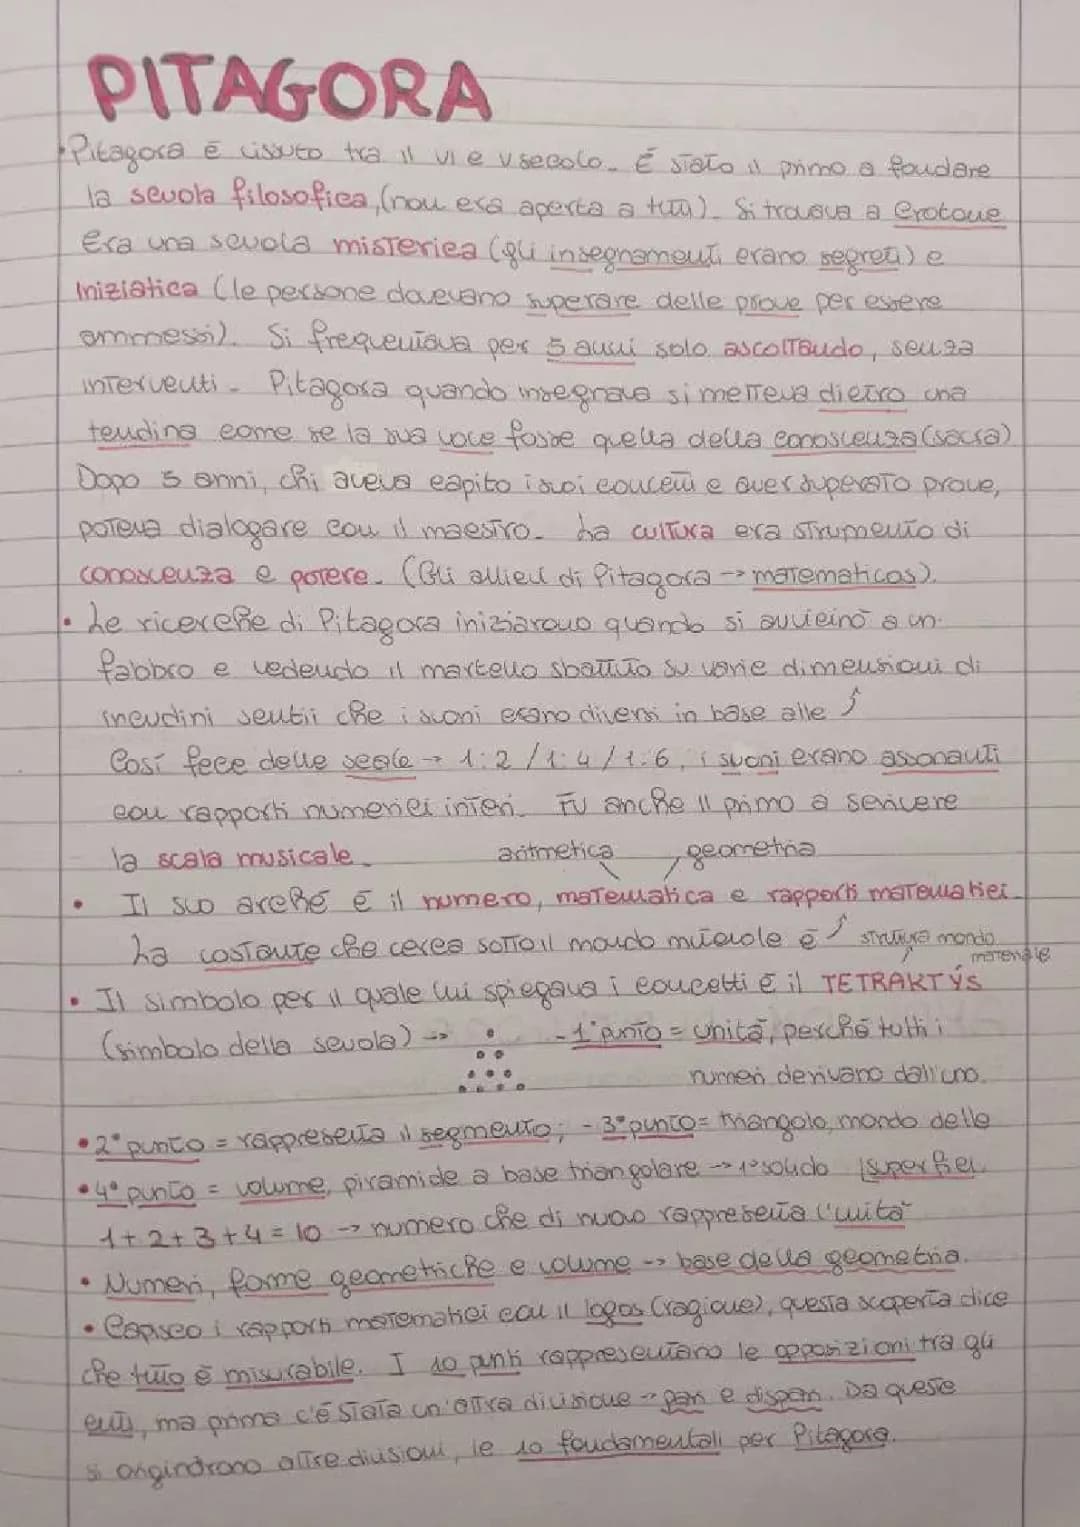 PITAGORA
Pitagora è vissuto tra il VI e V secolo. È stato il primo a fondare
la scuola filosofica, (non era aperta a tutti). Si trovava a Crotone
Era una scuola misterica (gli insegnamenti erano segreti) e
Iniziatica (le persone dovevano superare delle prove per essere
ammessi). Si frequentava per 5 anni solo ascoltando, senza
interventi. Pitagora quando insegnava si metteva dietro una
tendina come se la sua voce fosse quella della conoscenza (sacra)
Dopo 5 anni, chi aveva capito i suoi concetti e aver superato prove,
poteva dialogare con il maestro. La cultura era strumento di
conoscenza e potere. (Gli allievi di Pitagora -> matematicos).
• Le ricerche di Pitagora iniziarono quando si avvicinò a un
fabbro e vedendo il martello sbattuto su varie dimensioni di
incudini sentii che i suoni erano diversi in base alle
Così fece delle scale → 1:2 / 1:4 / 1:6, i suoni erano assonanti
con rapporti numerici interi. Fu anche il primo a scrivere
la scala musicale.
aritmetica geometria
• Il suo arché è il numero, matematica e rapporti matematici.
La costante che cerca sotto il mondo mutevole è struttura mondo
materiale
• Il simbolo per il quale lui spiegava i concetti è il TETRAKTYS
(simbolo della scuola) -> - 1° punto = unità, perché tutti i
numeri derivano dall'uno.
• 2° punto = rappresenta il segmento; - 3° punto = triangolo, mondo delle
• 4° punto = volume, piramide a base triangolare -> 1° solido superfici
1+2+3+4=10 -> numero che di nuovo rappresenta l'unità
• Numeri, forme geometriche e volume -> base della geometria.
• Capisco i rapporti matematici con il logos (ragione), questa scoperta dice
che tutto è misurabile. I 10 punti rappresentano le opposizioni tra gli
enti, ma prima c'è stata un'altra divisione -> pari e dispari. Da queste
si origindrono altre divisioni, le 10 fondamentali per Pitagora.